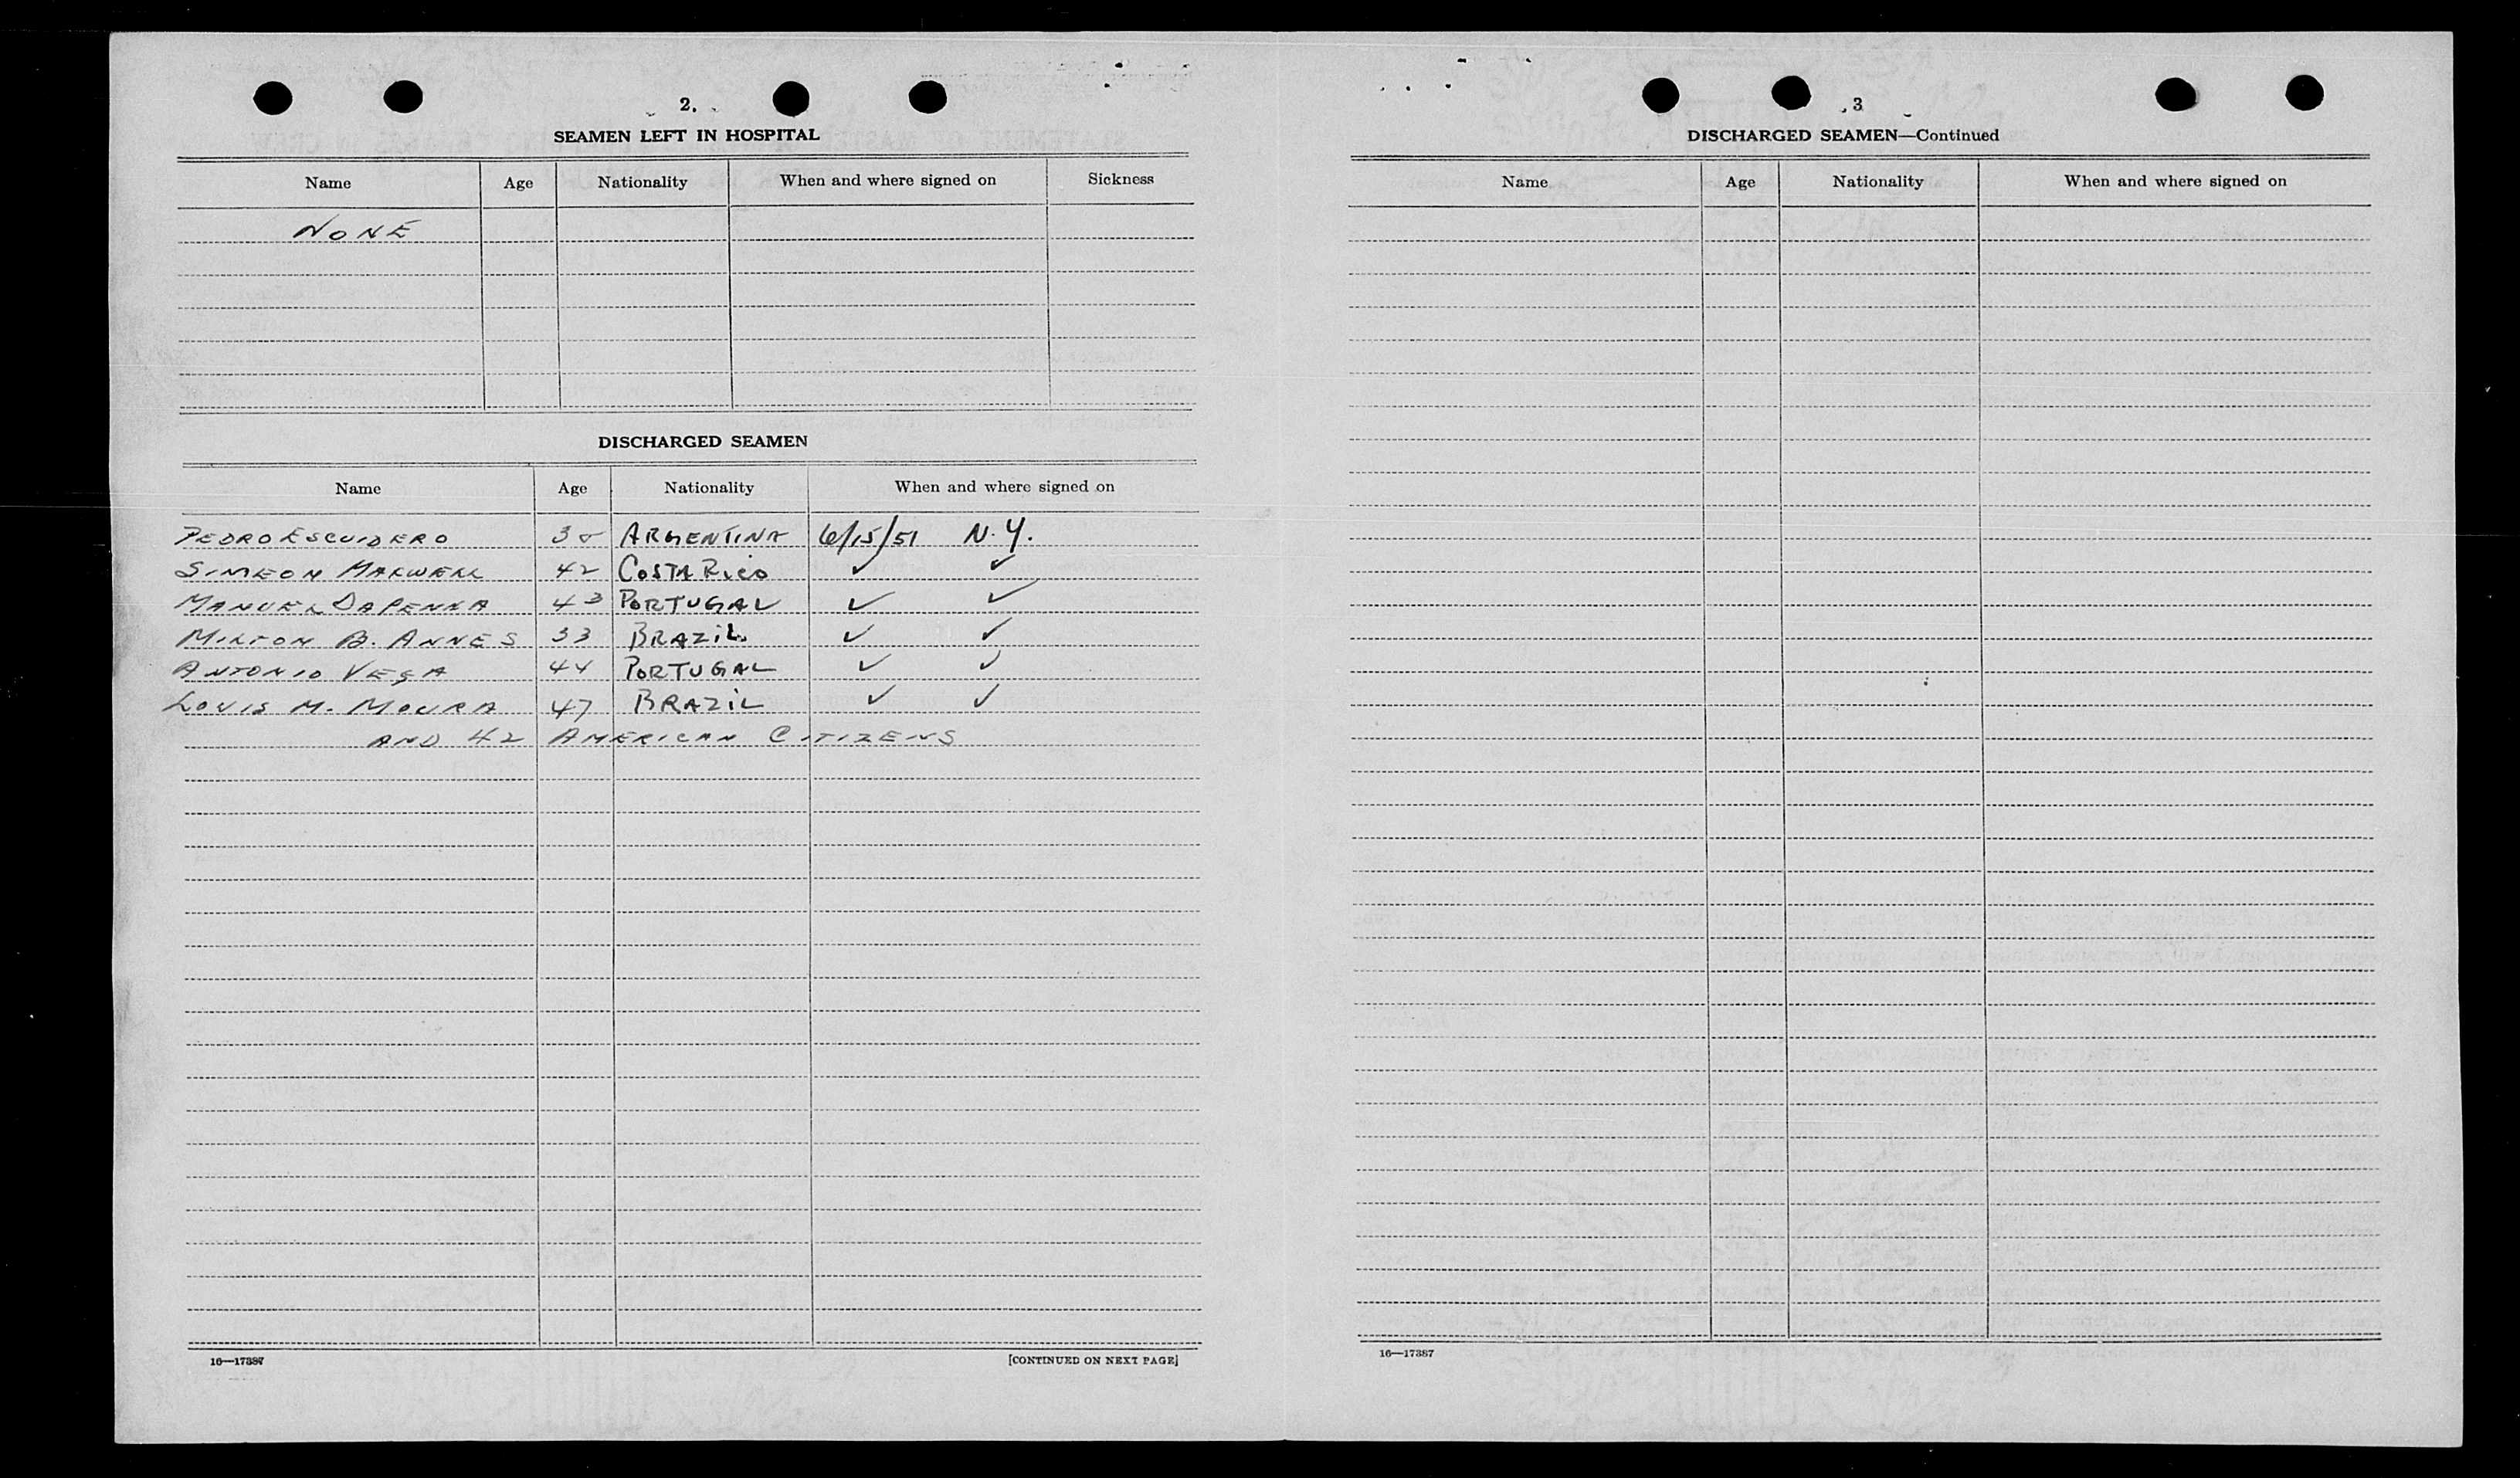 2.
SEAMEN LEFT IN HOSPITAL
Name Age Nationality When and where signed on Sickness
NONE
DISCHARGED SEAMEN
Name Age Nationality When and where signed on
PEDRO ESCUIDERO ARGENTINA 6/15/51 N.Y.
SIMEON MAXWELL 42 COSTA RICO ✓ ✓
MANUEL DAPENNA 43 PORTUGAL ✓ ✓
MILTON B. ANNES 33 BRAZIL ✓ ✓
ANTONIO VEGA 44 PORTUGAL ✓ ✓
LOUIS M. MOURA 47 BRAZIL ✓ ✓
AND 42 AMERICAN CITIZENS
16—17387
[CONTINUED ON NEXT PAGE]
3
DISCHARGED SEAMEN—Continued
Name Age Nationality When and where signed on
16—17387